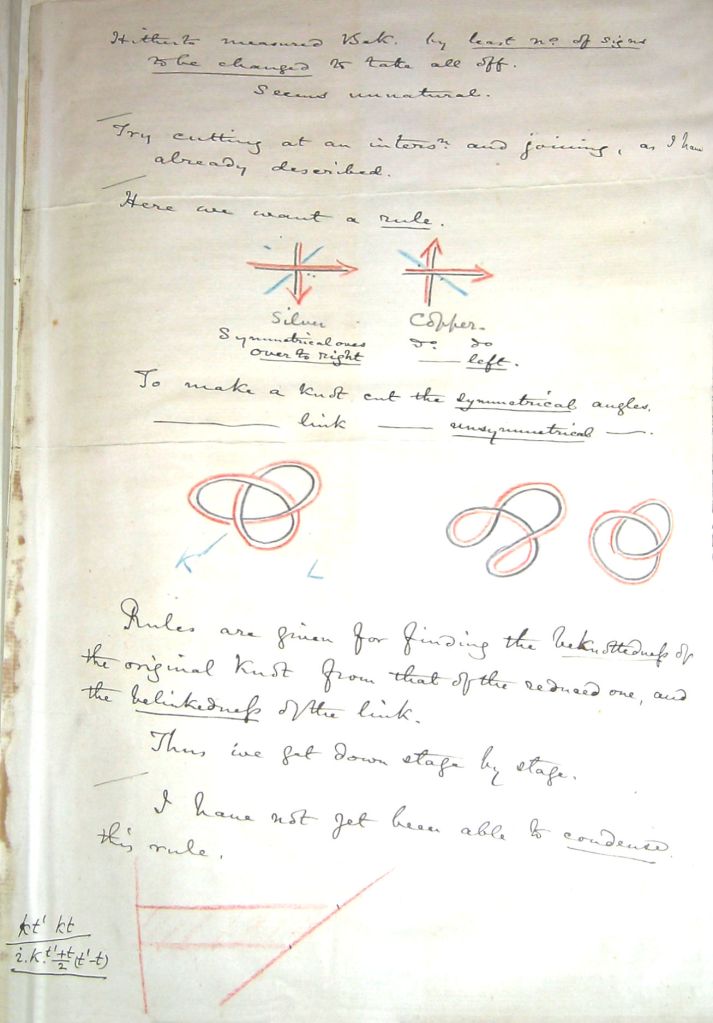 Hitherto measured Bek. by least no. of signs
to be changed to take all off.
Seems unnatural.
Try cutting at an intersn. and joining, as I have
already described.
Here we want a rule.
Silver Copper.
Symmetrical ones do do
over to right left.
To make a knot cut the symmetrical angles.
link unsymmetrical
K L
Rules are given for finding the beknottedness of
the original knot from that of the reduced one, and
the belinkedness of the link.
Thus we get down stage by stage.
I have not yet been able to condense
this rule.
kt' kt
i.k. t'+t/2 (t'-t)